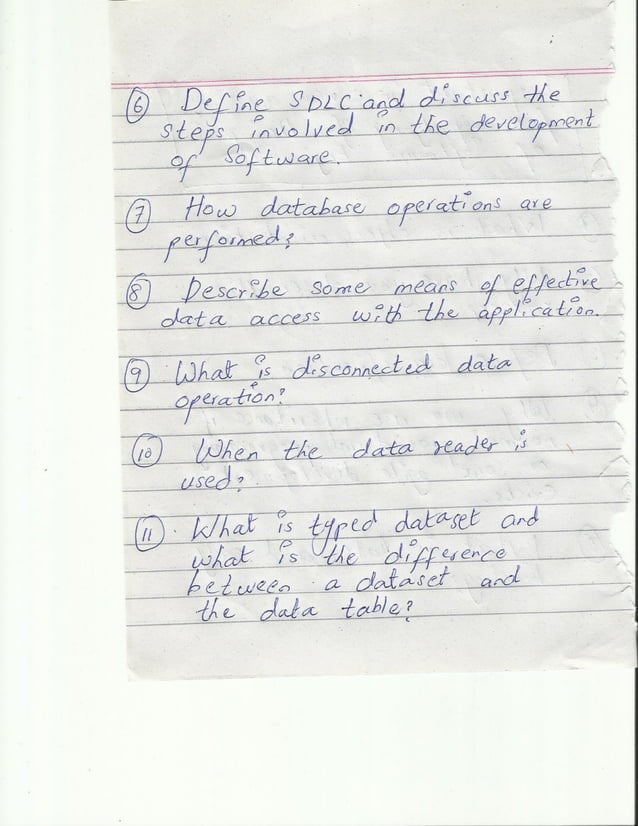 6 Define SDLC and discuss the
steps involved in the development
of Software.
7 How database operations are
performed?
8 Describe some means of effective
data access with the application.
9 What is disconnected data
operation?
10 When the data reader is
used?
11 What is typed dataset and
what is the difference
between a dataset and
the data table?